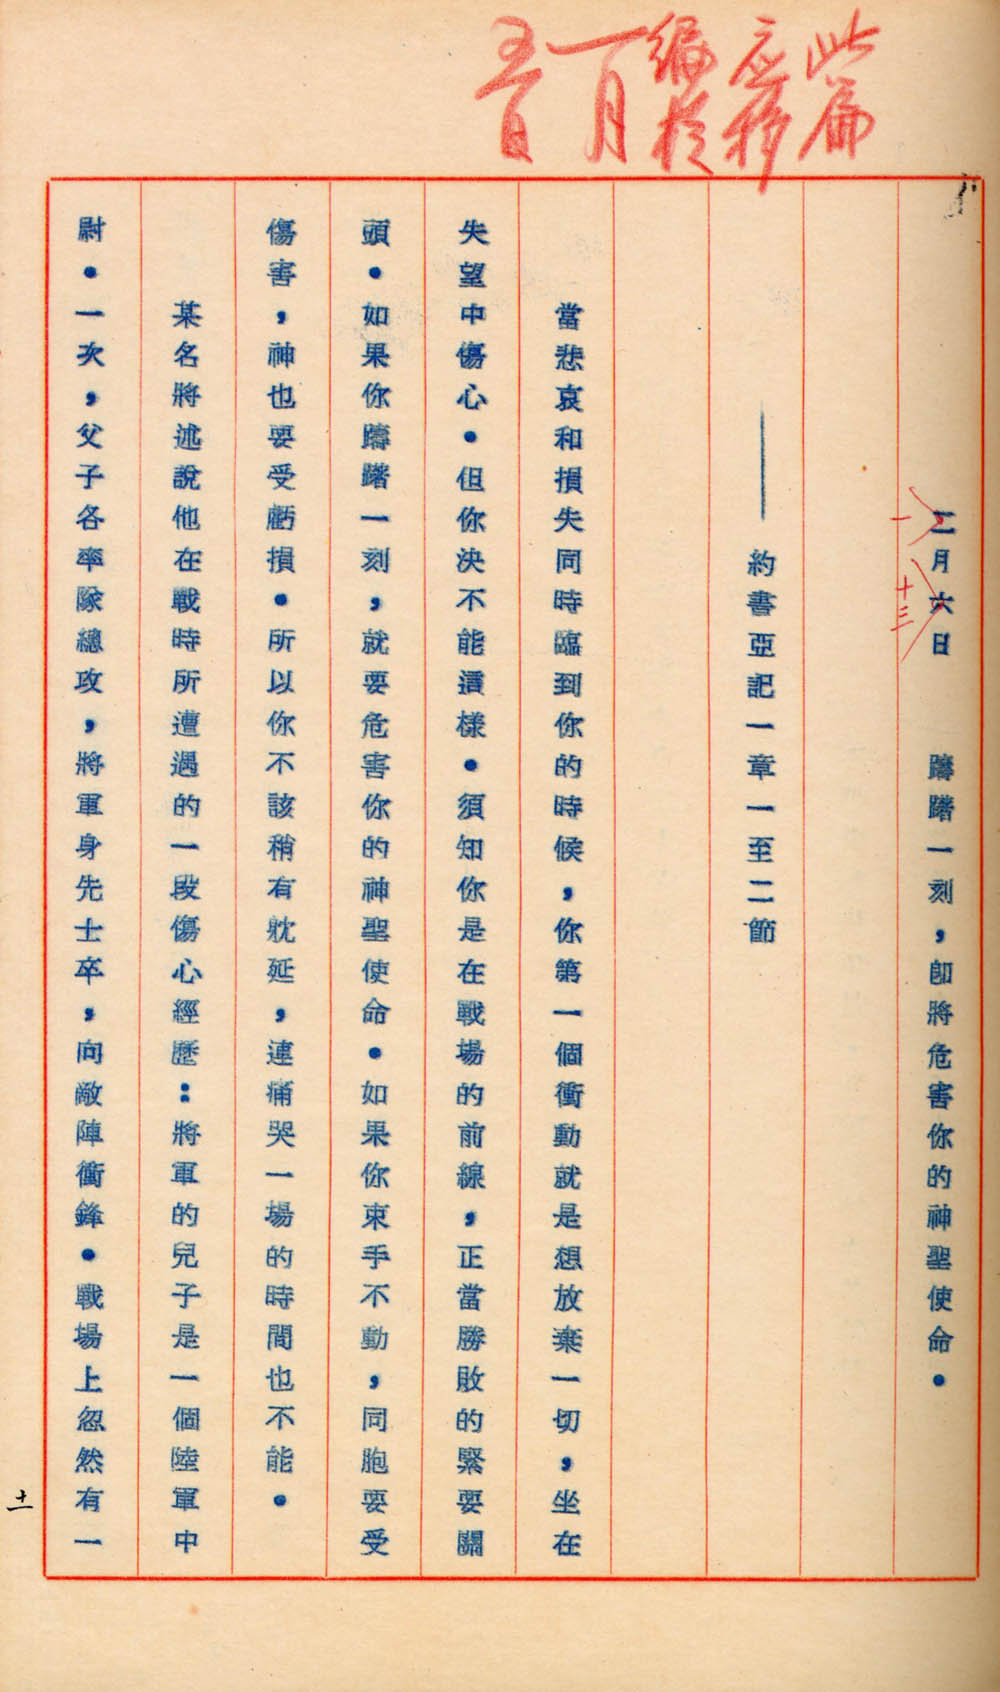 此篇
应移
編於
一月
五日
二月六日　躊躇一刻，卽將危害你的神聖使命。
一
十三
——約書亞記一章一至二節
當悲哀和損失同時臨到你的時候，你第一個衝動就是想放棄一切，坐在
失望中傷心。但你決不能這樣。須知你是在戰場的前線，正當勝敗的緊要關
頭。如果你躊躇一刻，就要危害你的神聖使命。如果你束手不動，同胞要受
傷害，神也要受虧損。所以你不該稍有躭延，連痛哭一場的時間也不能。
某名將述說他在戰時所遭遇的一段傷心經歷：將軍的兒子是一個陸軍中
尉。一次，父子各率隊總攻，將軍身先士卒，向敵陣衝鋒。戰場上忽然有一
十一